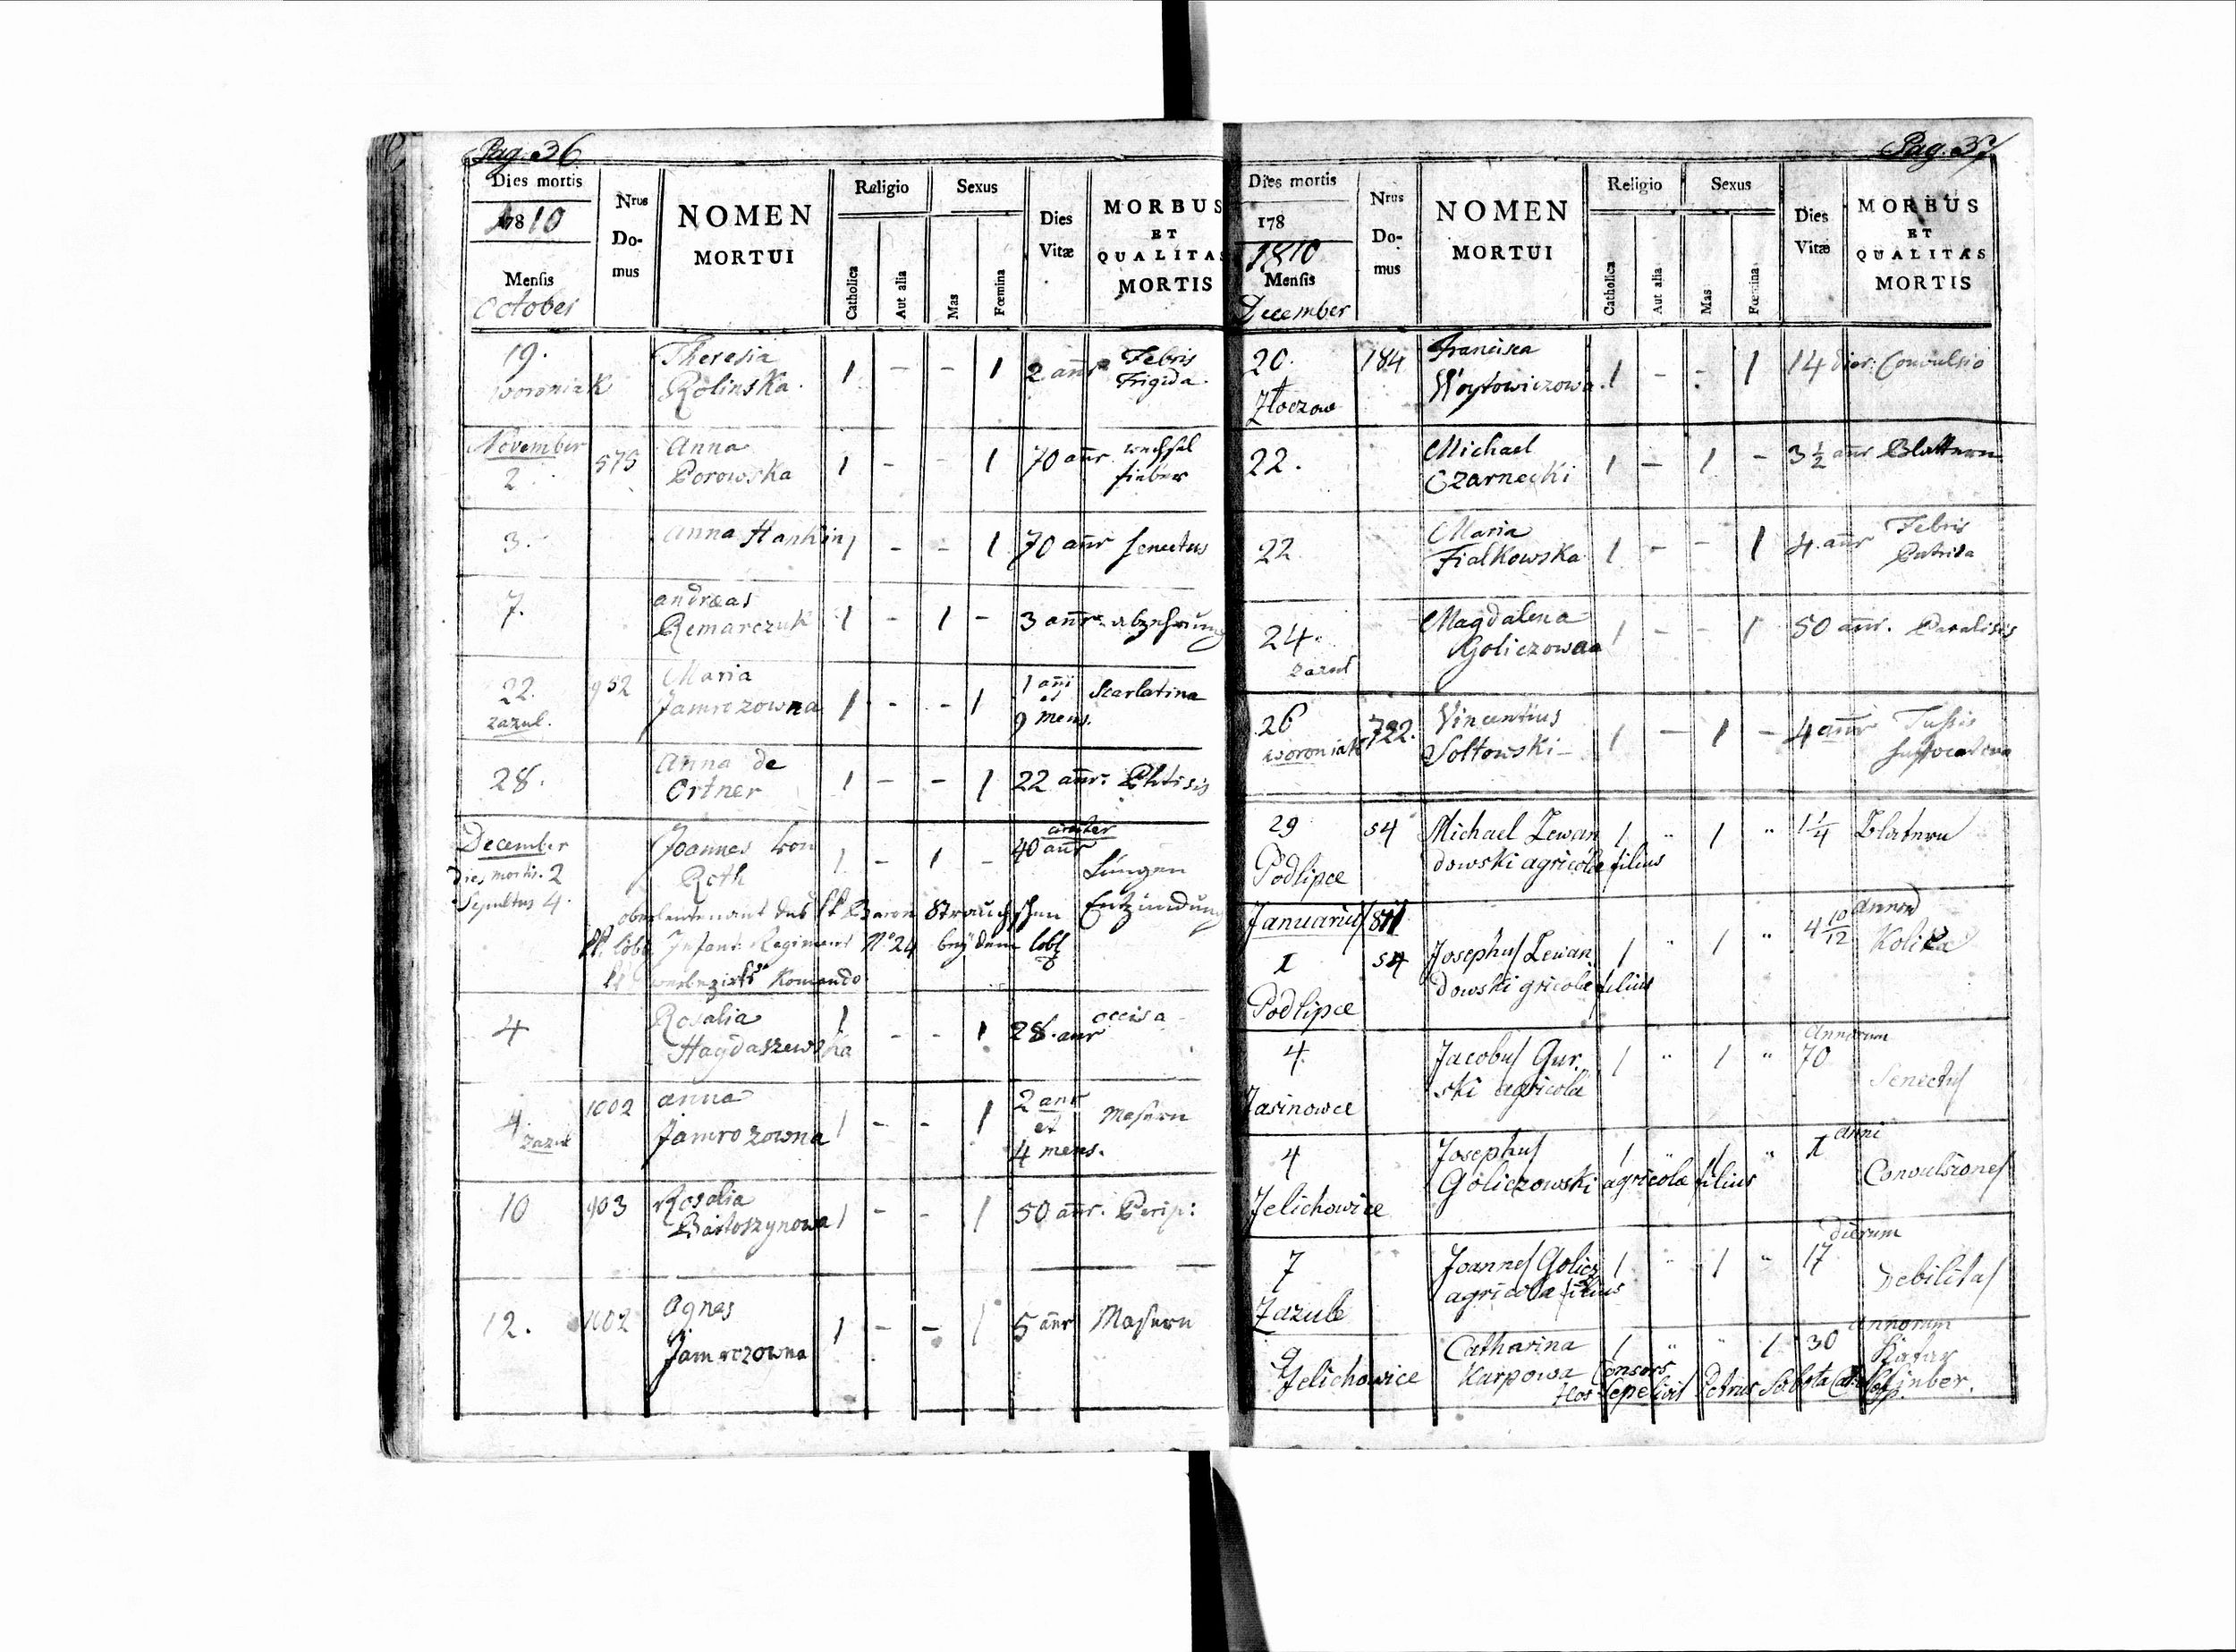 Pag. 36
Dies mortis
Nrus Domus
NOMEN MORTUI
Religio
Sexus
Dies Vitæ
MORBUS ET QUALITAS MORTIS
178 1810
Catholica
Aut alia
Mas
Fœmina
Mensis
October
19. Theresia 1 - - 1 2 añr Febris
Woroniak Rolinska. Frigida.
November Anna
2 575 Porowska 1 - - 1 70 añr. wechsel fieber
3. Anna Hankin 1 - - 1 70 añr Senectus
7. andreas
Remarczuk 1 - 1 - 3 añr. abzehrung
22. 952 Maria 1 añi et Scarlatina
zazul. Jamrozowna 1 - - 1 9 mens.
28. Anna de
Ortner 1 - - 1 22 añr. Phtisis
December Joannes von circiter
dies mortis. 2 Roth 1 - 1 - 40 añr Lungen
Sepultus 4. oberleutenant des kk Baron Strauchschen Entzündung
kk löbl Infant: Regiment No 24 bey dem löbl
kk werbezirks Komando
4 Rosalia 1 - - 1 28. anr occisa
Hagdaszewska
4. 1002 anna 2 anr et Masern
zazul Jamrozowna 1 - - 1 4 mens.
10 903 Rosalia
Bartoszynowa 1 - - 1 50 añr. Perip:
12. 1002 Agnes
Jamrozowna 1 - - 1 5 añr Masern
Pag. 37
Dies mortis
Nrus Domus
NOMEN MORTUI
Religio
Sexus
Dies Vitæ
MORBUS ET QUALITAS MORTIS
178
1810
Catholica
Aut alia
Mas
Fœmina
Mensis
December
20. 184 Francisca
Złoczow Woytowiczowa. 1 - - 1 14 dier: Convulsio
22. Michael
Czarnecki 1 - 1 - 3 1/2 añr Blattern
22 Maria Febris
Fialkowska 1 - - 1 4 añr Putrida
24. Magdalena
zazul Goliczowaa 1 - - 1 50 añr. Paralisis
26 722. Vincentius Tussis
Woroniak Soltowski 1 - 1 - 4 añr suffocativa
29 54 Michael Lewan 1 " 1 " 1 1/4 Blatern
Podlipce dowski agricolæ filius
Januarius 811 Annor
1 54 Josephus Lewan 1 " 1 " 4 10/12 Kolika
Podlipce dowski gricolæ filius
4 Jacobus Gur. 1 " 1 " Annorum 70
Jasinowce ski agricola Senectus
4 Josephus 1 " 1 " 1 anni
Jelichowice Goliczowski agricolæ filius Convulsiones
7 Joannes Golicz 1 " 1 " dierum 17
Zazule agricolæ filius Debilitas
9 Catharina 1 " " 1 30 annorum Katar
Jelichowice Karpowa Consors fieber.
Hos Sepelivit Petrus Sobota